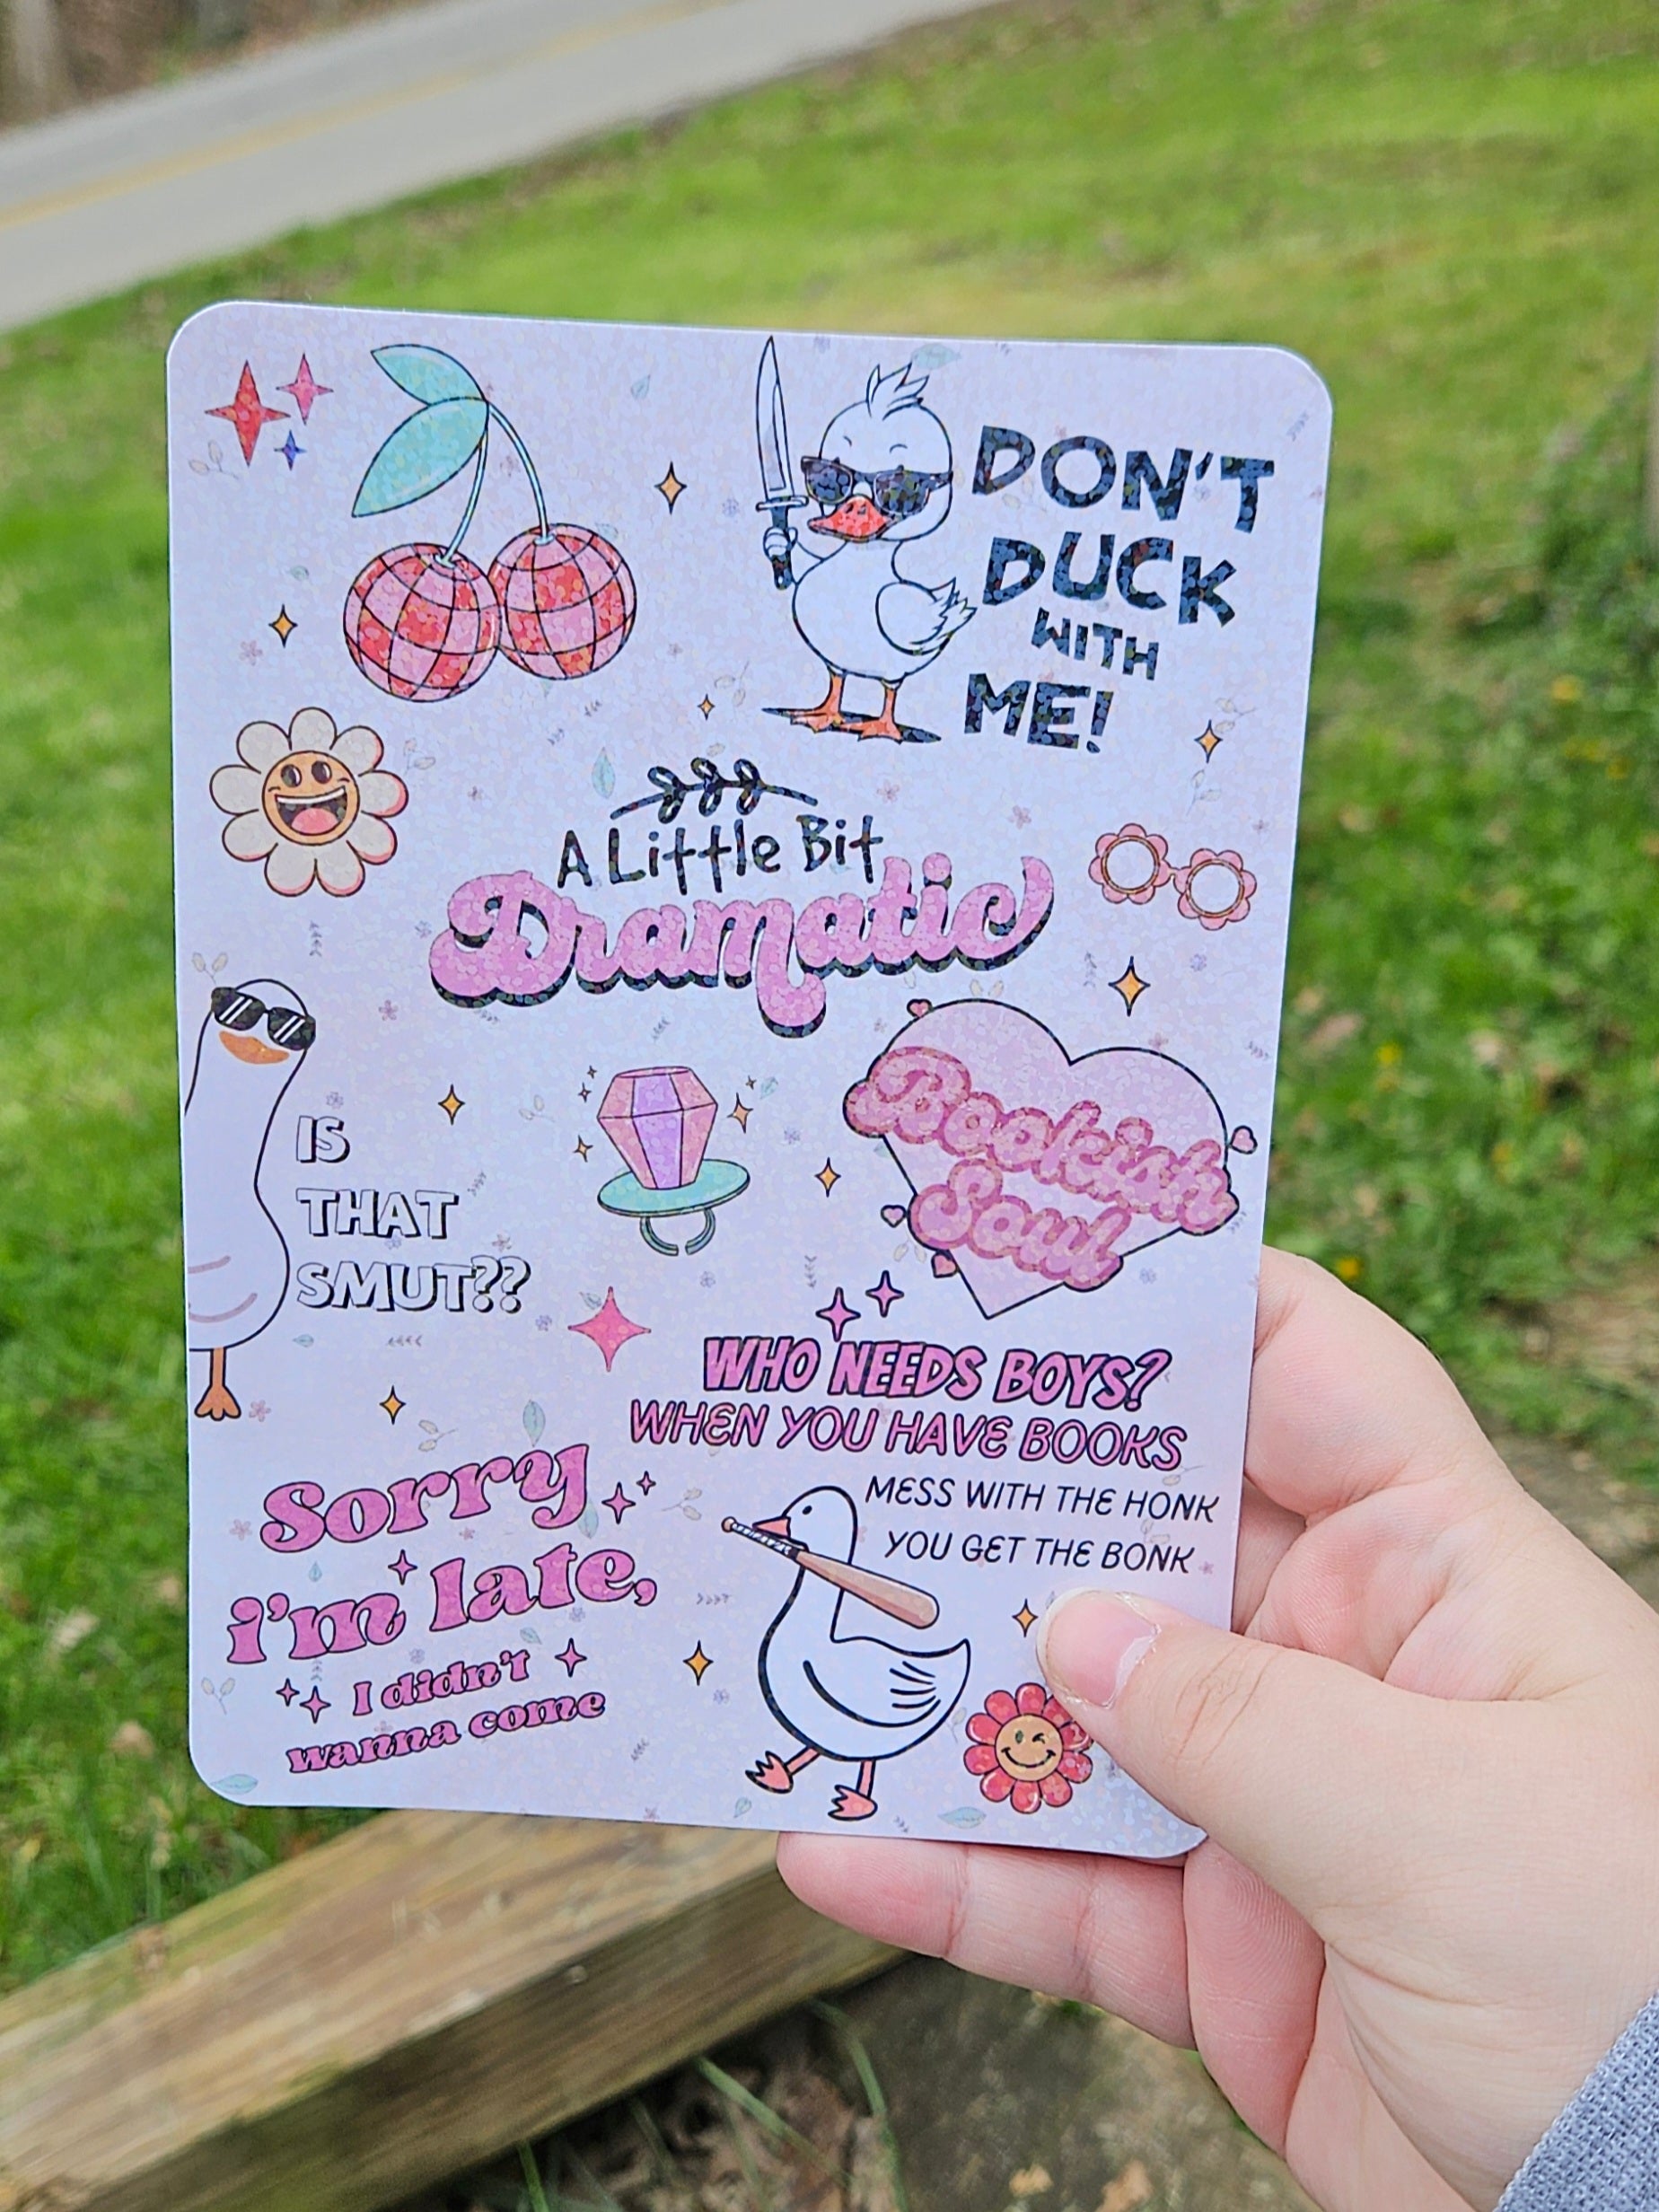 DON'T
DUCK
WITH
ME!
A Little Bit
Dramatic
IS
THAT
SMUT??
Bookish
Soul
WHO NEEDS BOYS?
WHEN YOU HAVE BOOKS
Sorry
i'm late,
I didn't
wanna come
MESS WITH THE HONK
YOU GET THE BONK